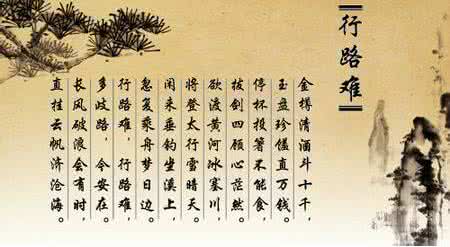 行路难
金樽清酒斗十千，
玉盘珍馐直万钱。
停杯投箸不能食
拔剑四顾心茫然。
欲渡黄河冰塞川，
将登太行雪晴天。
闲来垂钓坐溪上，
忽复乘舟梦日边。
行路难，行路难，
多岐路，今安在。
长风破浪会有时，
直挂云帆济沧海。